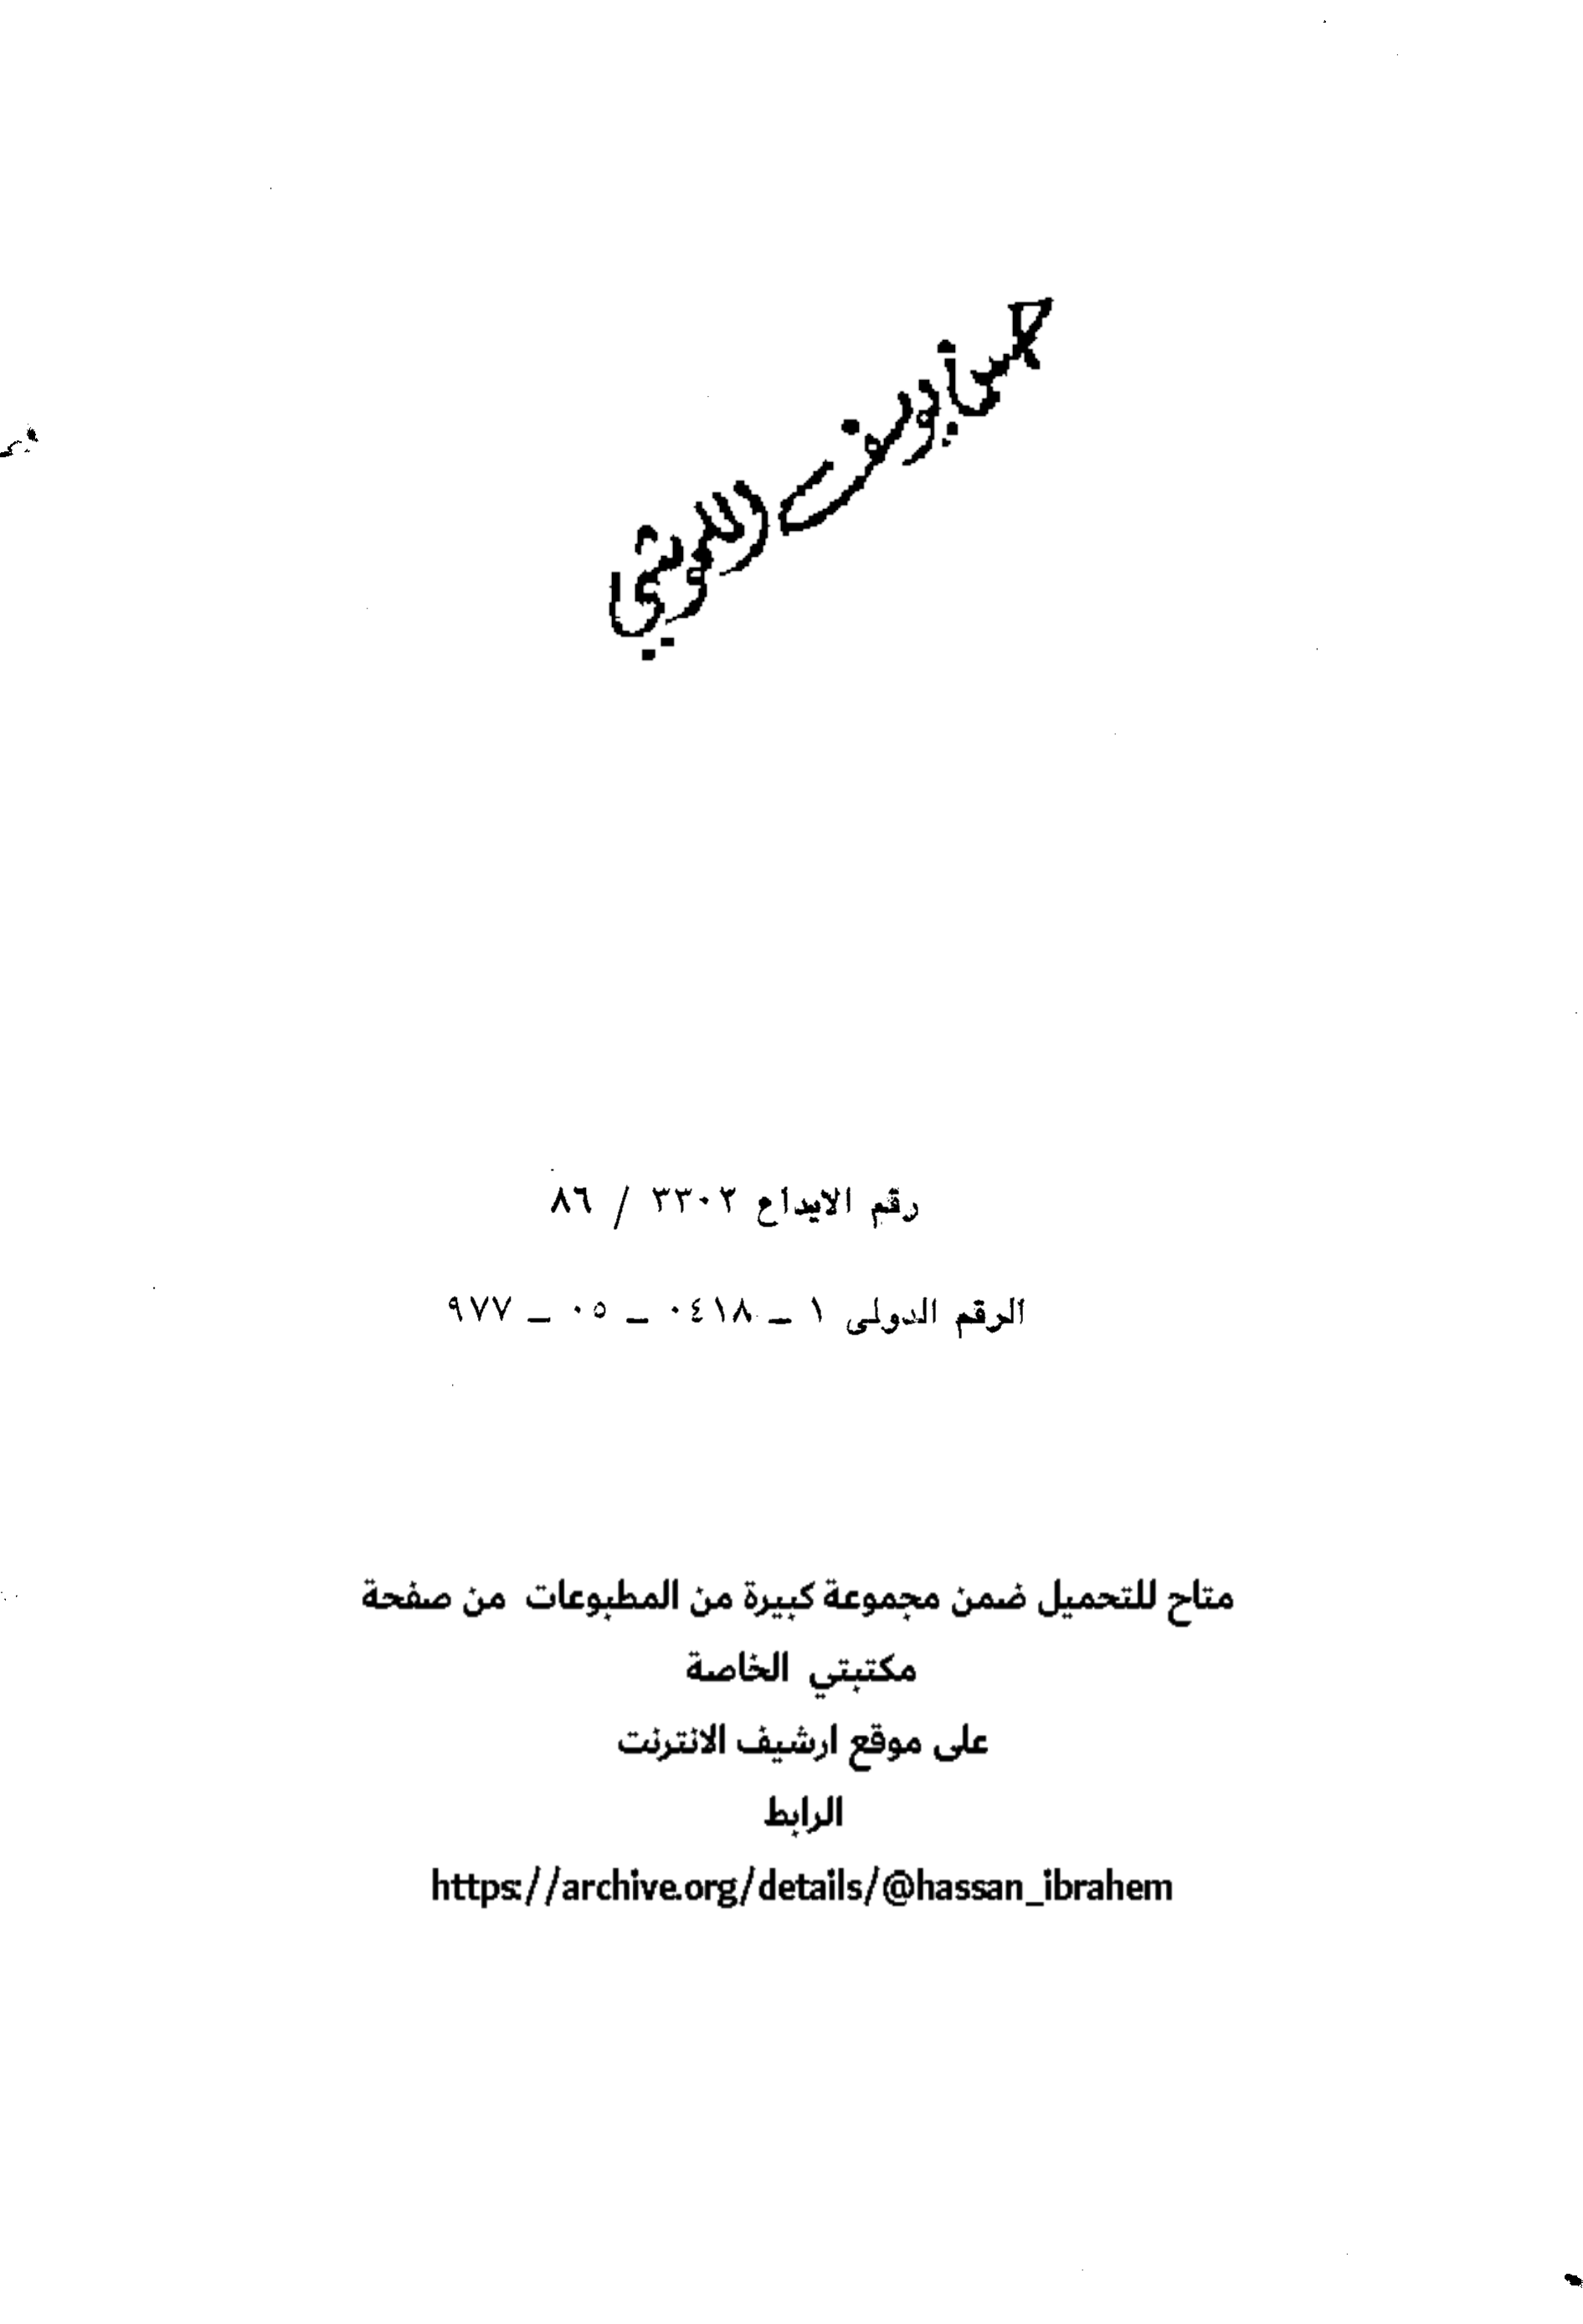 رقم الايداع ٣٣٠٢ / ٨٦
الرقم الدولى ١ ــ ٠٤١٨ ــ ٠٥ ــ ٩٧٧
متاح للتحميل ضمن مجموعة كبيرة من المطبوعات من صفحة
مكتبتي الخاصة
على موقع ارشيف الانترنت
الرابط
https://archive.org/details/@hassan_ibrahem